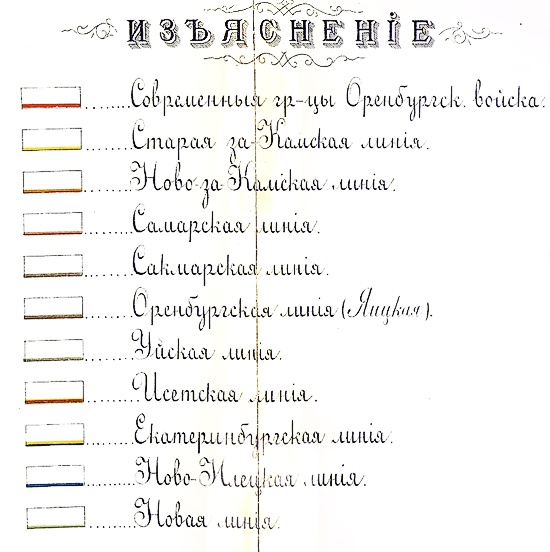 ИЗЪЯСНЕНІЕ
Современныя гр-цы Оренбургск. войска.
Старая за-Камская линія.
Ново-за-Камская линія.
Самарская линія.
Сакмарская линія.
Оренбургская линія (Яицкая).
Уйская линія.
Исетская линія.
Екатеринбургская линія.
Ново-Илецкая линія.
Новая линія.